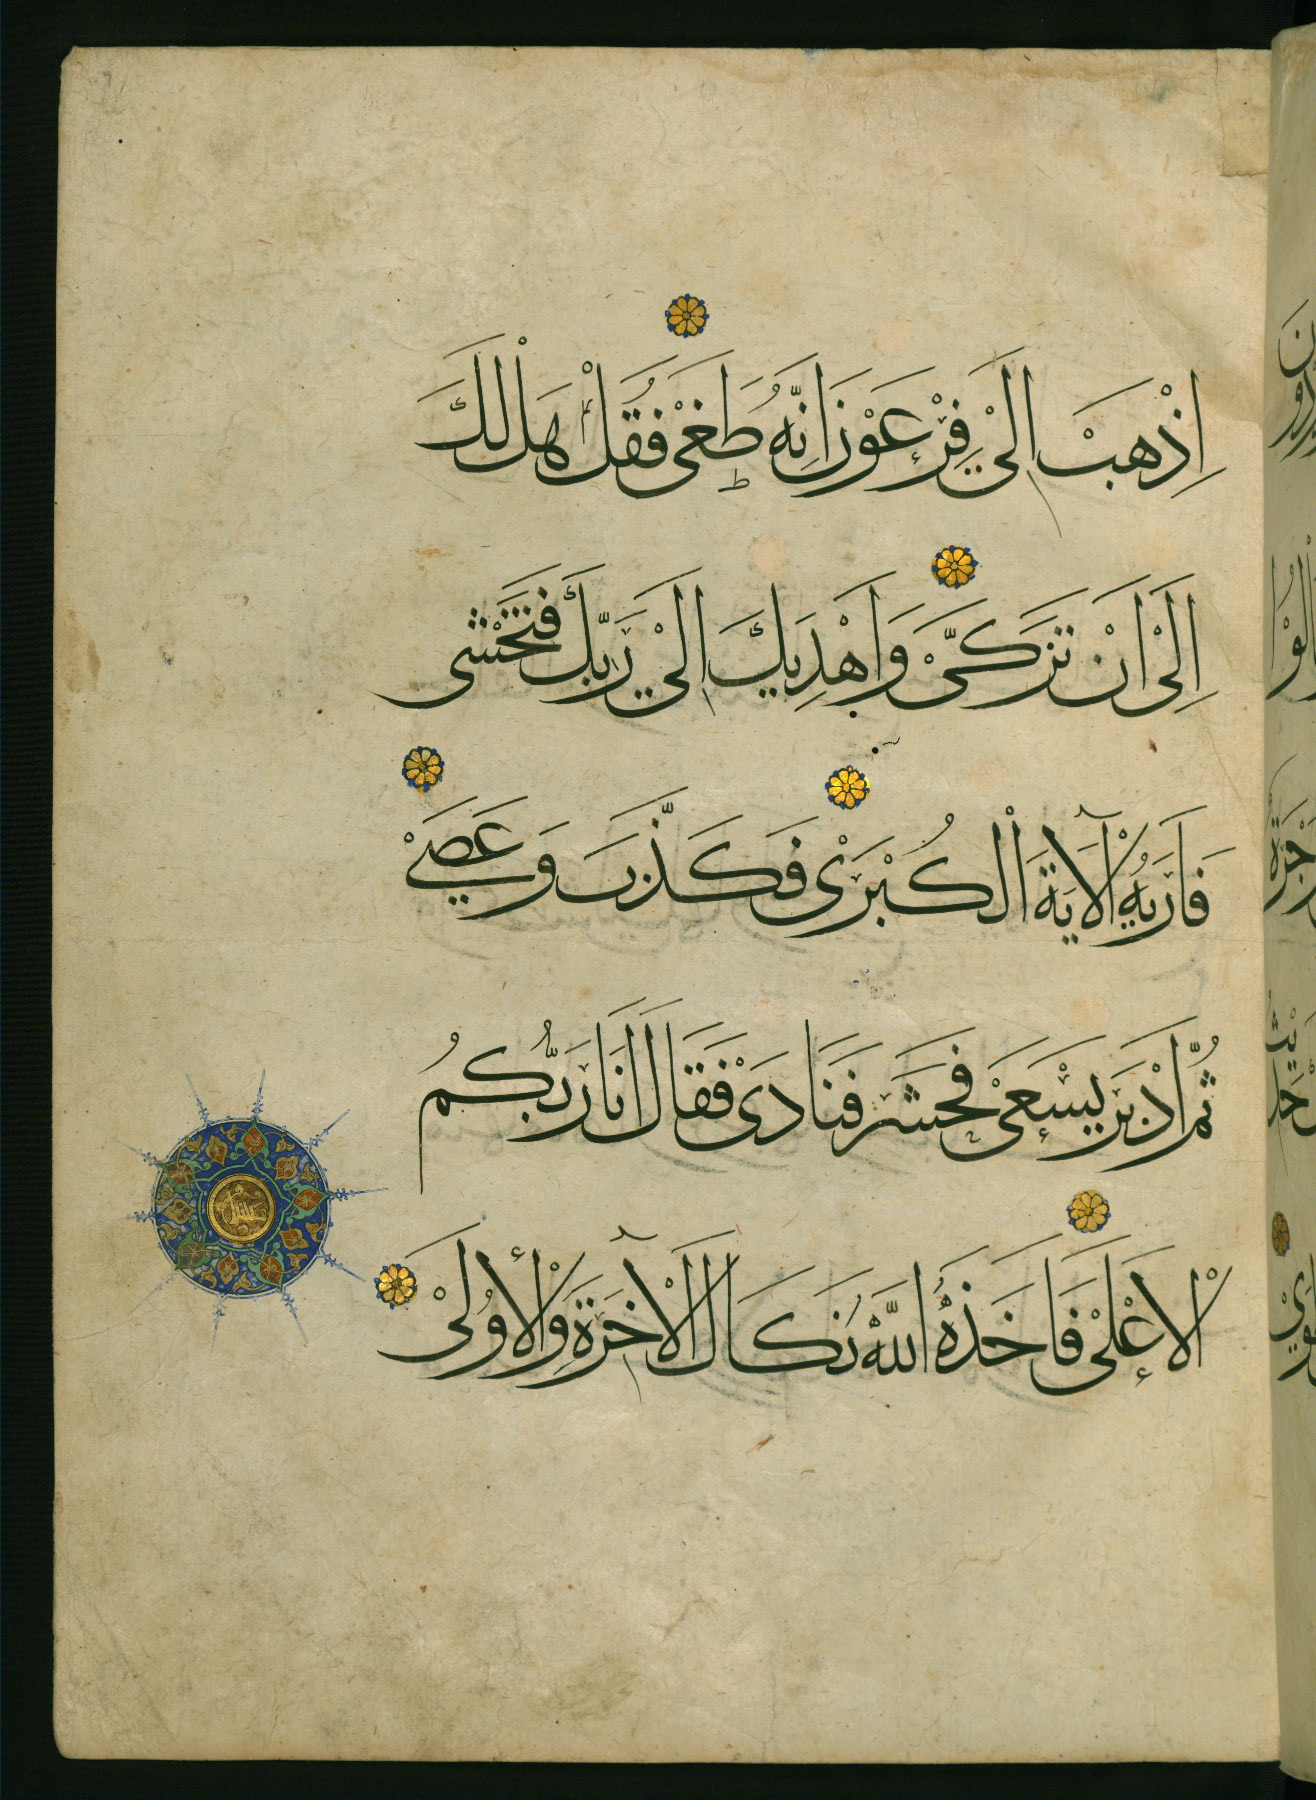 اِذْهَبْ اِلَىٰ فِرْعَوْنَ اِنَّهُ طَغَىٰ فَقُلْ هَلْ لَكَ
اِلَىٰ اَنْ تَزَكَّىٰ وَاَهْدِيَكَ اِلَىٰ رَبِّكَ فَتَخْشَى
فَاَرَيهُ الْآيَةَ الْكُبْرَىٰ فَكَذَّبَ وَعَصَىٰ
ثُمَّ اَدْبَرَ يَسْعَىٰ فَحَشَرَ فَنَادَىٰ فَقَالَ اَنَا رَبُّكُمُ
الْاَعْلَىٰ فَاَخَذَهُ اللَّهُ نَكَالَ الْآخِرَةِ وَالْأُولَىٰ